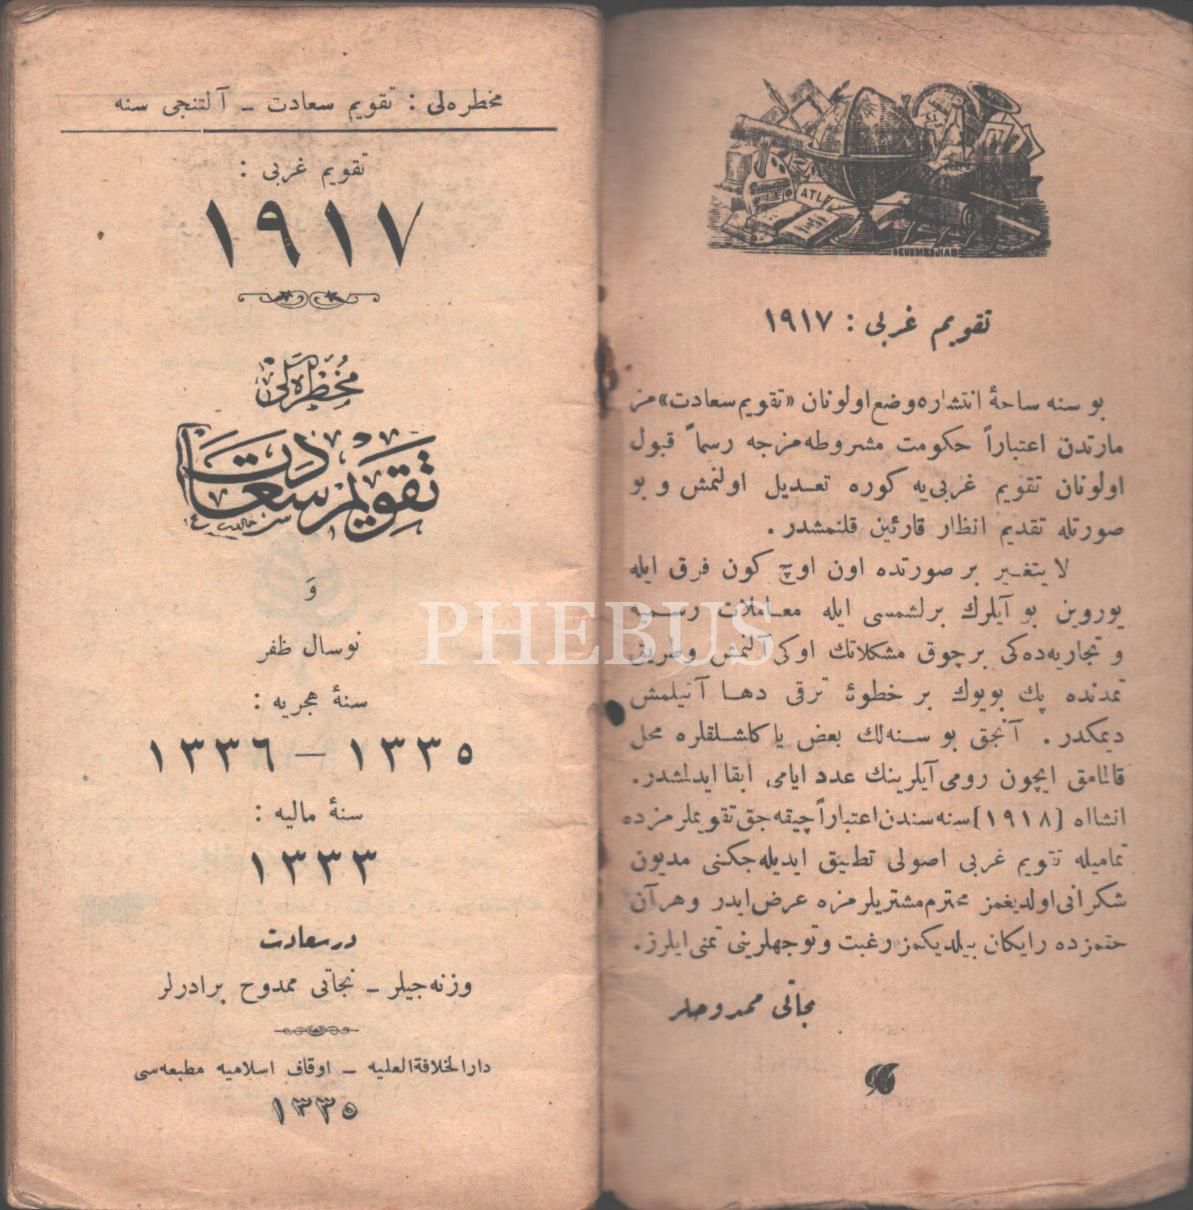 مخطره‌لی : تقویم سعادت ـ آلتنجی سنه
تقویم غربی :
١٩١٧
مخطره‌لی
تقویم سعادت
وَ
نوسال ظفر
سنهٔ هجریه :
١٣٣٥ — ١٣٣٦
سنهٔ مالیه :
١٣٣٣
درسعادت
وزنه‌جیلر ـ نجاتی ممدوح برادرلر
دارالخلافة‌العلیه ـ اوقاف اسلامیه مطبعه‌سی
١٣٣٥
ATL
تقویم غربی : ١٩١٧
بو سنه ساحهٔ انتشاره وضع اولونان «تقویم سعادت» مز
مارتدن اعتباراً حکومت مشروطه‌مزجه رسماً قبول
اولونان تقویم غربی‌یه کوره تعدیل اولنمش و بو
صورتله تقدیم انظار قارئین قلنمشدر .
لایتغیر بر صورتده اون اوچ کون فرق ایله
یوروین بو آیلرك برلشمسی ایله معاملات رسمیه
و تجاریه‌ده‌کی برچوق مشکلاتك اوکی آلنمش وطریق
تمدنده پك بویوك بر خطوهٔ ترقی دها آتیلمش
دیمکدر . آنجق بو سنه‌لك بعض یاکلشلقلره محل
قالمامق ایچون رومی آیلرینك عدد ایامی ابقا ایدلمشدر.
انشااه [١٩١٨] سنه سندن اعتباراً چیقه‌جق تقویملرمزده
تمامیله تقویم غربی اصولی تطبیق ایدیله‌جکنی مدیون
شکرانی اولدیغمز محترم مشتریلرمزه عرض ایدر وهرآن
حقمزده رایکان بیلدیکمز رغبت وتوجهلرینی تمنی ایلرز.
نجاتی ممدوحلر
PHEBUS